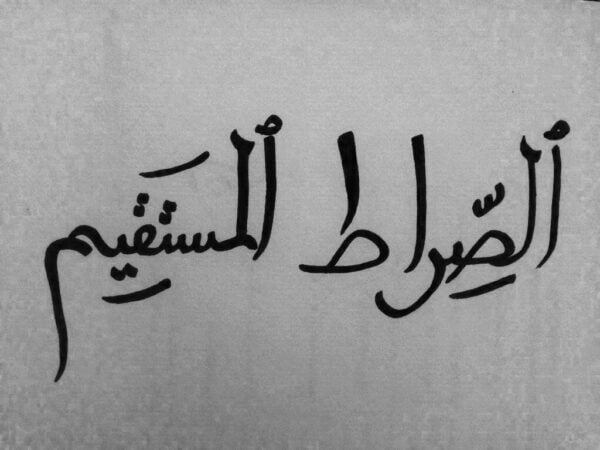 ٱلصِّراط ٱلمستَقيم